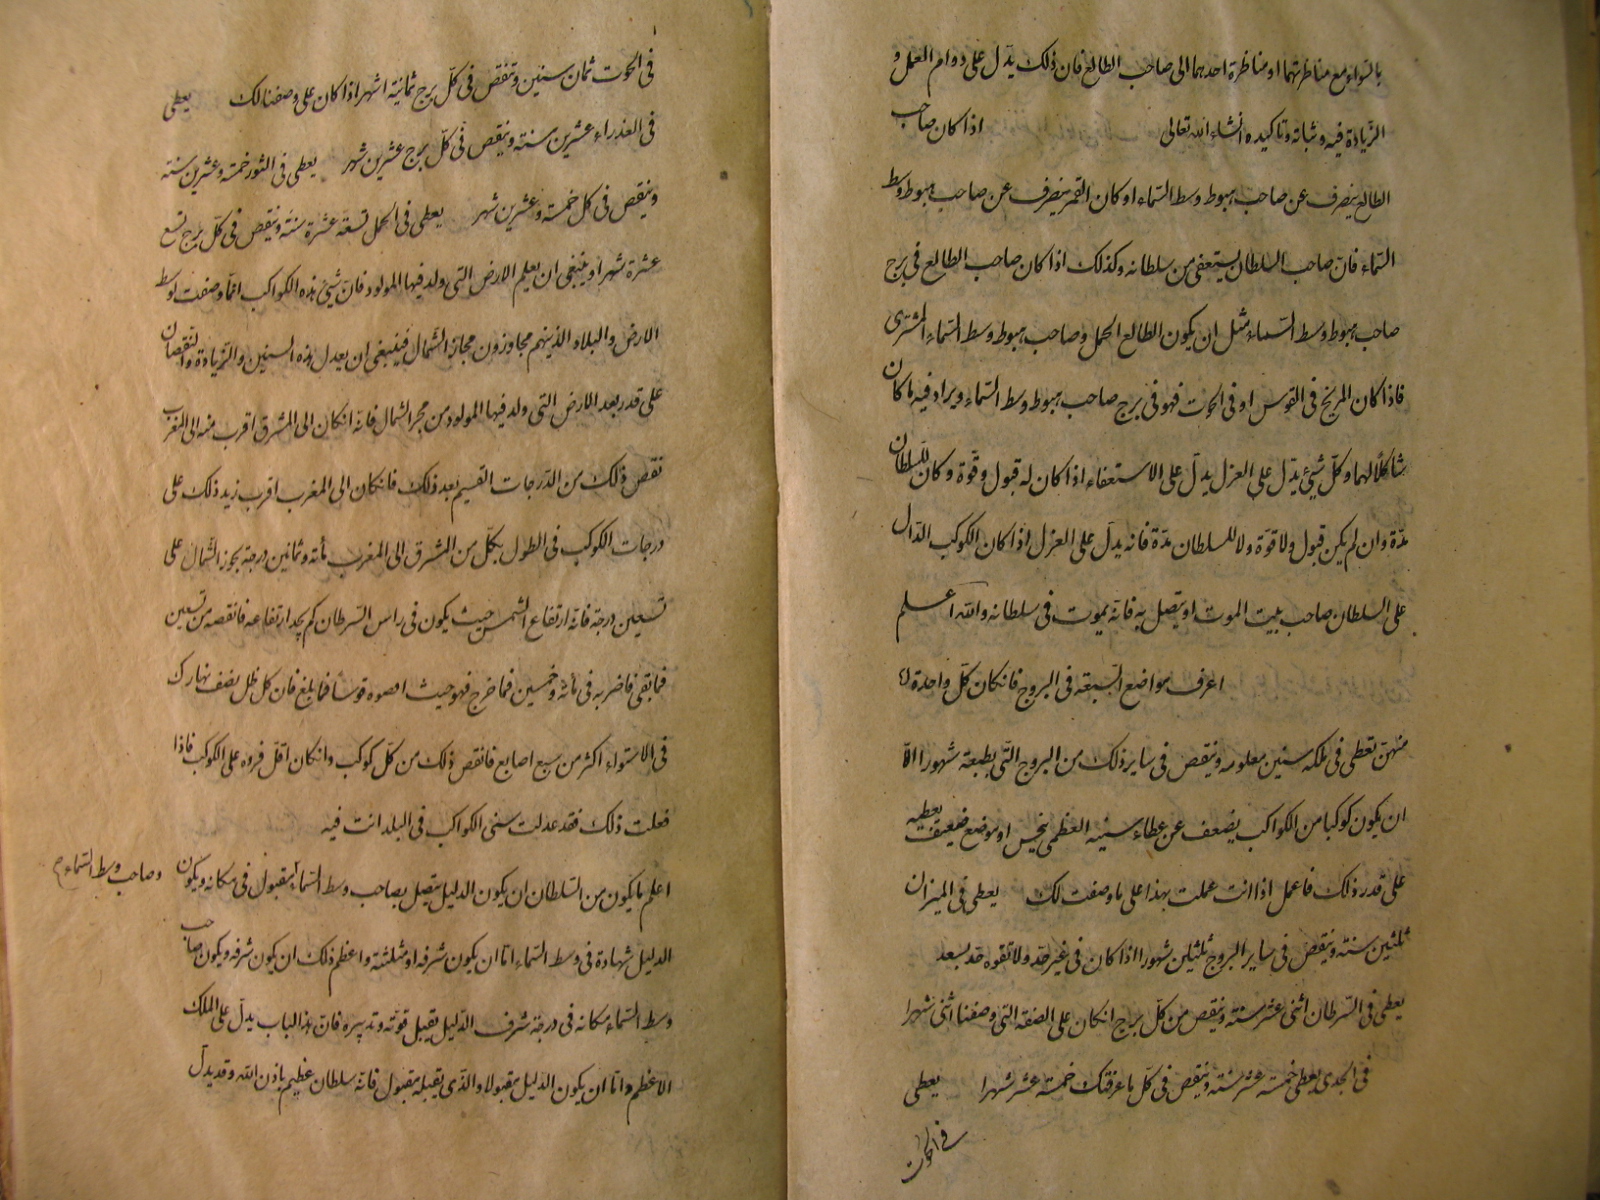 بالسواء مع مناظرتهما او مناظرة احدهما الى صاحب الطالع فان ذلك يدل على دوام العمل و
الزيادة فيه وثباته وتاكيده انشاء الله تعالى اذا كان صاحب
الطالع ينصرف عن صاحب هبوط وسط السماء او كان القمر ينصرف عن صاحب هبوط وسط
السماء فان صاحب السلطان يستعفى من سلطانه وكذلك اذا كان صاحب الطالع فى برج
صاحب هبوط وسط السماء مثل ان يكون الطالع الحمل وصاحب هبوط وسط السماء المشترى
فاذا كان المريخ فى القوس او فى الحوت فهو فى برج صاحب هبوط وسط السماء ويراد فيه ما كان
شاكلا لهما وكل شيئ يدل على العزل يدل على الاستعفاء اذا كان له قبول وقوة وكان للسلطان
مدة وان لم يكن قبول ولا قوة ولا للسلطان مدة فانه يدل على العزل اذا كان الكوكب الدال
على السلطان صاحب بيت الموت او يتصل به فانه يموت فى سلطانه والله اعلم
اعرف مواضع السبعة فى البروج فانكان كل واحدة
منهن تعطى فى ملكه سنين معلومه وينقص فى ساير ذلك من البروج التى بطبعة شهورا الا
ان يكون كوكبا من الكواكب يضعف عن عطاء سنيه العظمى بنحس او موضع ضعيف يعطيه
على قدر ذلك فاعمل اذا انت عملت بهذا على ما وصفت لك يعطى فى الميزان
ثلثين سنة وينقص فى ساير البروج ثلثين شهورا اذا كان فى غير حد ولا تقوه حد بسعد
يعطى فى السرطان اثنى عشر سنة وينقص من كل برج انكان على الصفة التى وصفنا اثنى شهرا
فى الجدى يعطى خمسة عشر سنة وينقص فى كل ما عرفتك خمسة عشر شهرا يعطى
فى الحوت
فى الحوت ثمان سنين وتنقص فى كل برج ثمانية اشهر اذا كان على وصفنا لك يعطى
فى العذراء عشرين سنة وينقص فى كل برج عشرين شهر يعطى فى الثور خمسة وعشرين سنة
وينقص فى كل خمسة وعشرين شهر يعطى فى الحمل تسعة عشرة سنة وينقص فى كل برج تسع
عشرة شهرا وينبغى ان يعلم الارض التى ولد فيها المولود فان شيئ هذه الكواكب انما وصفت لوسط
الارض والبلاد الذينهم مجاوزون مجاز الشمال فينبغى ان يعدل هذه السنين والزيادة والنقصان
على قدر بعد الارض التى ولد فيها المولود من مجر الشمال فانه انكان الى المشرق اقرب منه الى المغرب
نقص ذلك من الدرجات القسيم بعد ذلك فانكان الى المغرب اقرب زيد ذلك على
درجات الكوكب فى الطول بكل من المشرق الى المغرب مأته وثمانين درجة بجوز الشمال على
تسعين درجة فانه ارتفاع الشمس حيث يكون فى راس السرطان كم يجد ارتفاعه فانقصه من تسعين
فما بقى فاضربه فى مأته وخمسين فما خرج فهو حيث قوسا فما بلغ فان كل ظل نصف نهارك
فى الاستواء اكثر من سبع اصابع فانقص ذلك من كل كوكب وانكان اقل فزده على الكوكب فاذا
فعلت ذلك فقد عدلت سنى الكواكب فى البلد انت فيه
اعلم ما يكون من السلطان ان يكون الدليل يتصل بصاحب وسط السماء بقبول فى مكانه ويكون
وصاحب وسط السماء
الدليل شهادة فى وسط السماء اما ان يكون شرفه او مثلثته واعظم ذلك ان يكون شرفه ويكون صاحب
وسط السماء مكانه فى درجة شرف الدليل يقبل قوته وتدبيره فان هذا الباب يدل على الملك
الاعظم واما ان يكون الدليل مقبولا والذى يقبله مقبول فانه سلطان عظيم باذن الله وقد يدل